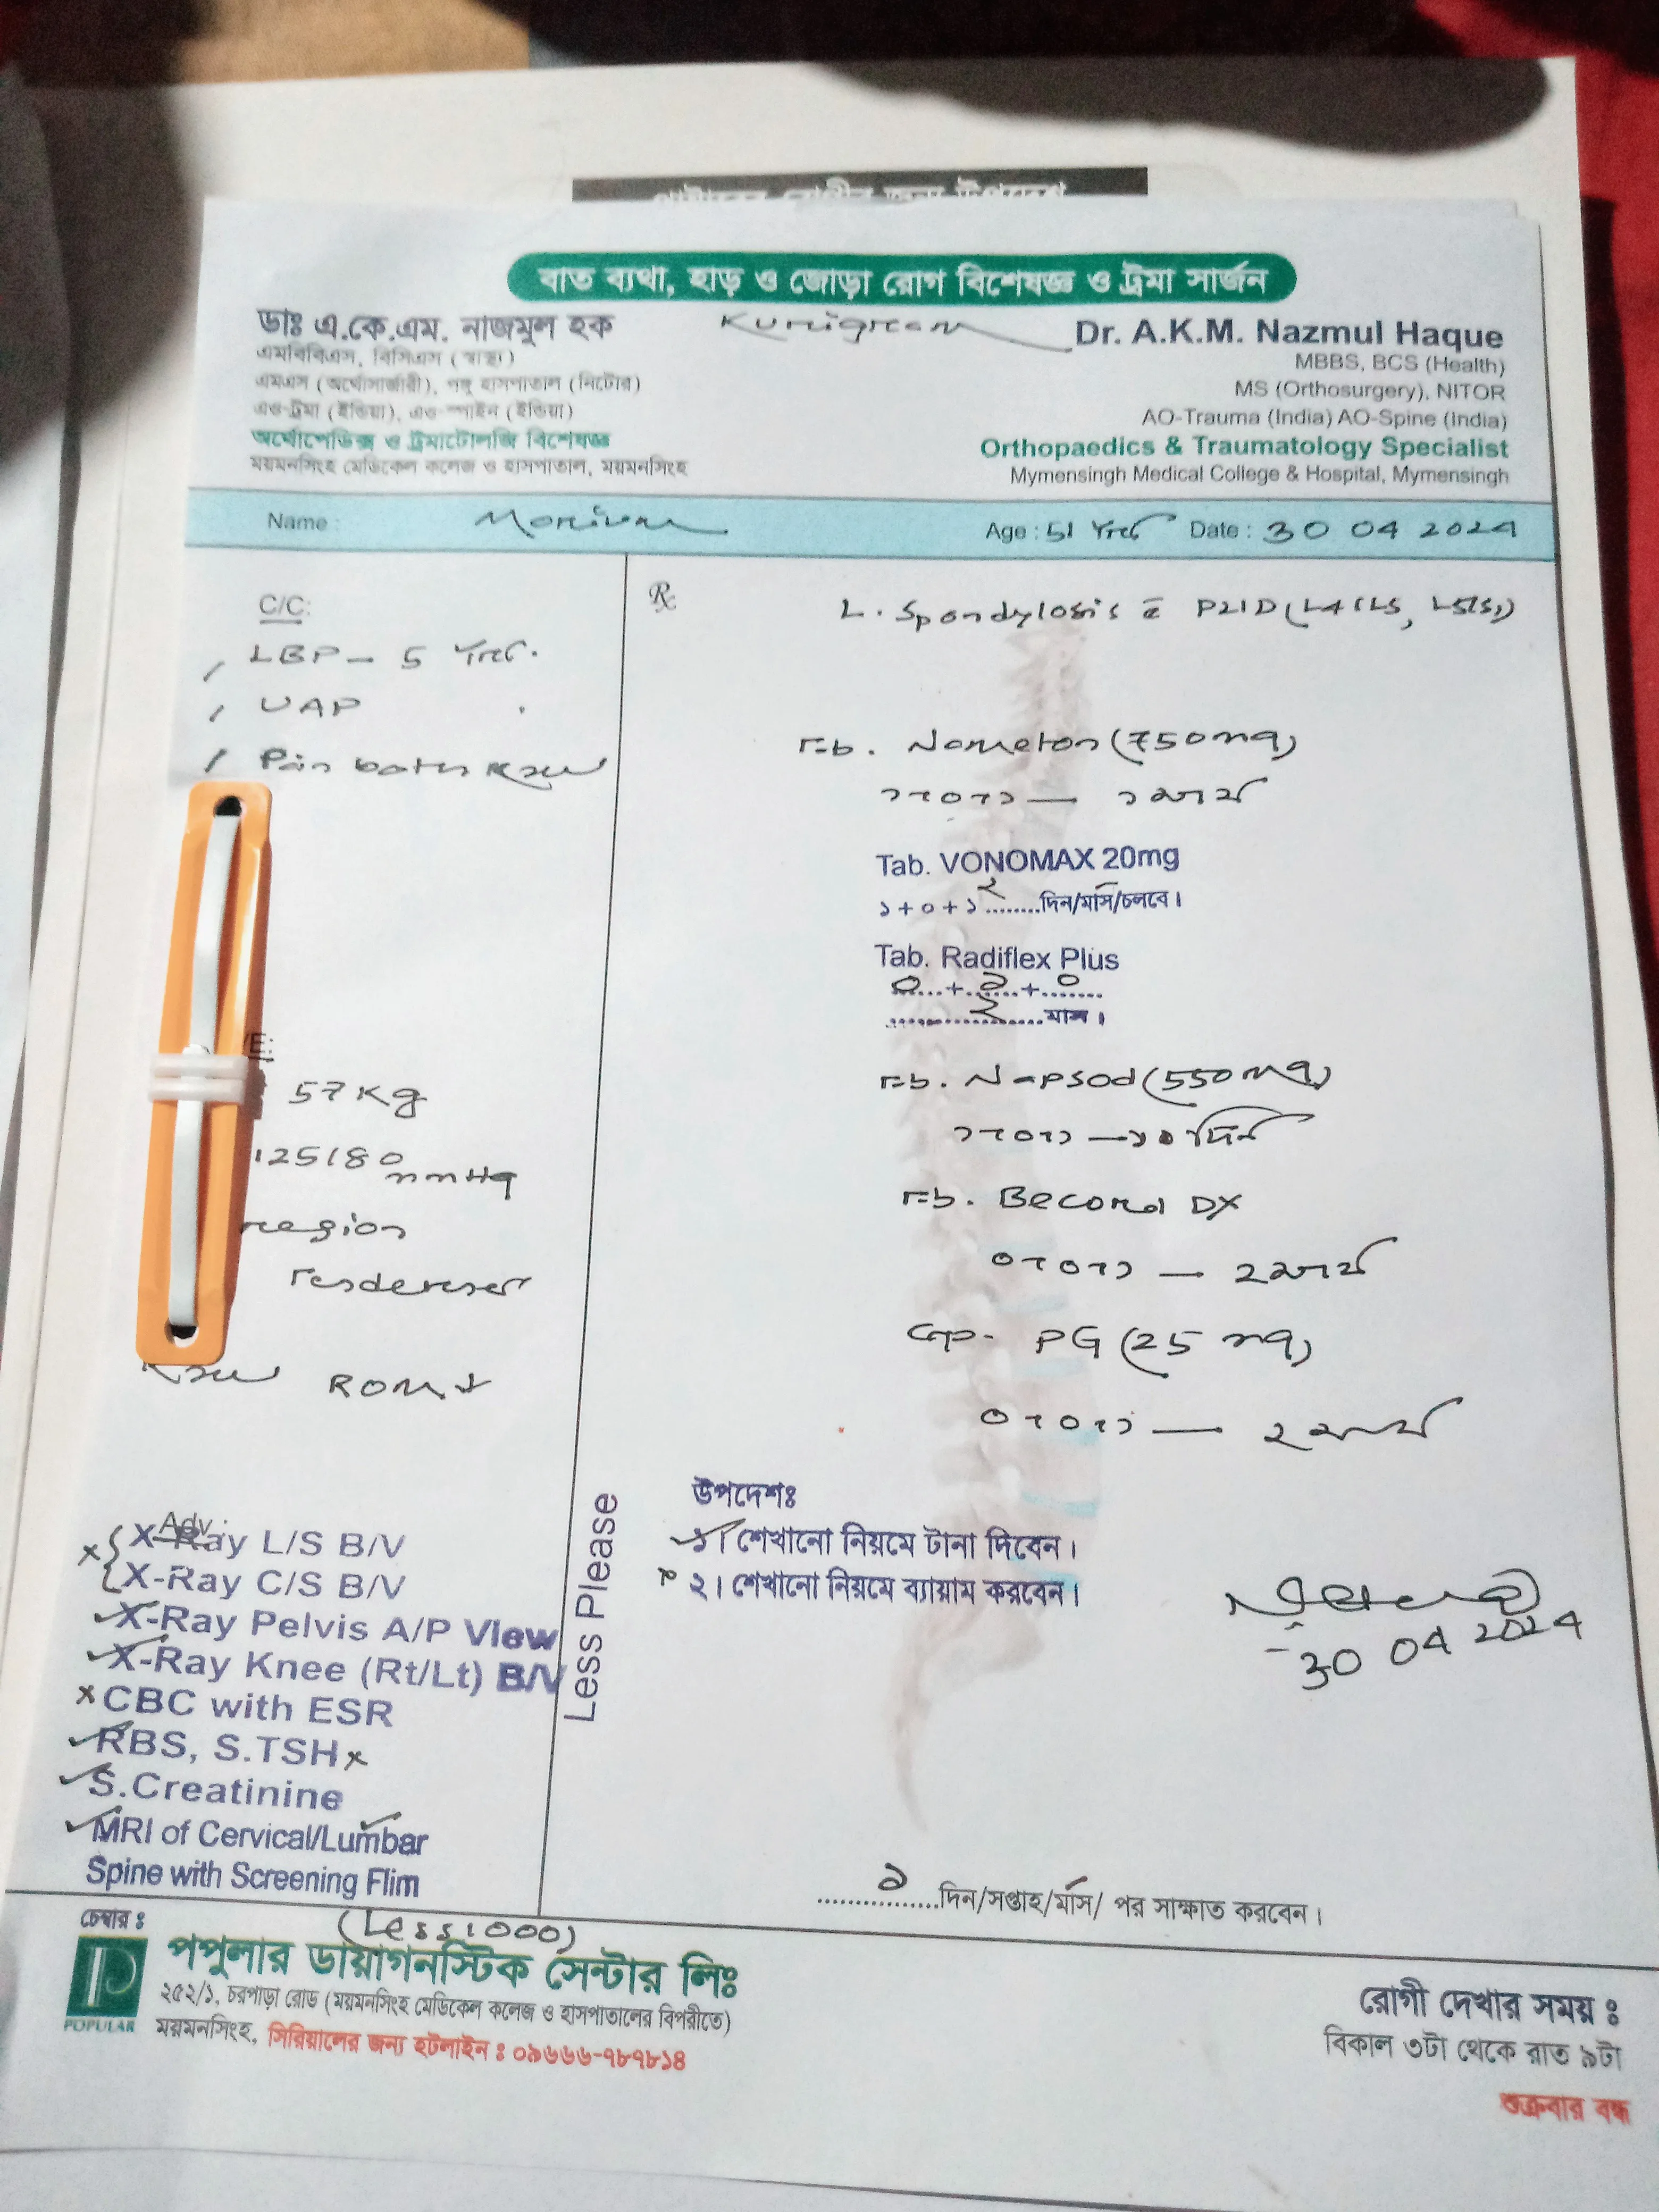 বাত ব্যথা, হাড় ও জোড়া রোগ বিশেষজ্ঞ ও ট্রমা সার্জন
ডাঃ এ.কে.এম. নাজমুল হক
এমবিবিএস, বিসিএস (স্বাস্থ্য)
এমএস (অর্থোসার্জারী), পঙ্গু হাসপাতাল (নিটোর)
এও-ট্রমা (ইন্ডিয়া), এও-স্পাইন (ইন্ডিয়া)
অর্থোপেডিক্স ও ট্রমাটোলজি বিশেষজ্ঞ
ময়মনসিংহ মেডিকেল কলেজ ও হাসপাতাল, ময়মনসিংহ
Dr. A.K.M. Nazmul Haque
MBBS, BCS (Health)
MS (Orthosurgery), NITOR
AO-Trauma (India) AO-Spine (India)
Orthopaedics & Traumatology Specialist
Mymensingh Medical College & Hospital, Mymensingh
Name : Age : 51 Yrs Date : 30 04 2024
C/C:
LBP - 5 Yrs.
UAP
Pain both knee
57 Kg
125/80 mmHg
region
Tenderness
Knee ROM
Adv :
X-Ray L/S B/V
X-Ray C/S B/V
X-Ray Pelvis A/P View
X-Ray Knee (Rt/Lt) B/V
CBC with ESR
RBS, S.TSH
S.Creatinine
MRI of Cervical/Lumbar
Spine with Screening Flim
Less Please
(Less 1000)
Rx
L. Spondylosis c̄ PLID (L4/L5, L5/S1)
Tab. (750mg)
১+০+১ — ১ মাস
Tab. VONOMAX 20mg
১+০+১ ২ ........দিন/মাস/চলবে।
Tab. Radiflex Plus
০...+..১...+..০....
............২......মাস।
Tab. Napsod (550mg)
১+০+১ — ১০ দিন
Tab. Becoral DX
০+০+১ — ২ মাস
Cap. PG (25 mg)
০+০+১ — ২ মাস
উপদেশঃ
১। শেখানো নিয়মে টানা দিবেন।
২। শেখানো নিয়মে ব্যায়াম করবেন।
30 04 2024
........১........দিন/সপ্তাহ/মাস/ পর সাক্ষাত করবেন।
চেম্বার ঃ
POPULAR
পপুলার ডায়াগনস্টিক সেন্টার লিঃ
২৫২/১, চরপাড়া রোড (ময়মনসিংহ মেডিকেল কলেজ ও হাসপাতালের বিপরীতে)
ময়মনসিংহ, সিরিয়ালের জন্য হটলাইন ঃ ০৯৬৬৬-৭৮৭৮১৪
রোগী দেখার সময় ঃ
বিকাল ৩টা থেকে রাত ৯টা
শুক্রবার বন্ধ